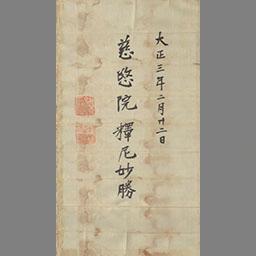 大正三年二月廿二日
慈愍院釋尼妙勝